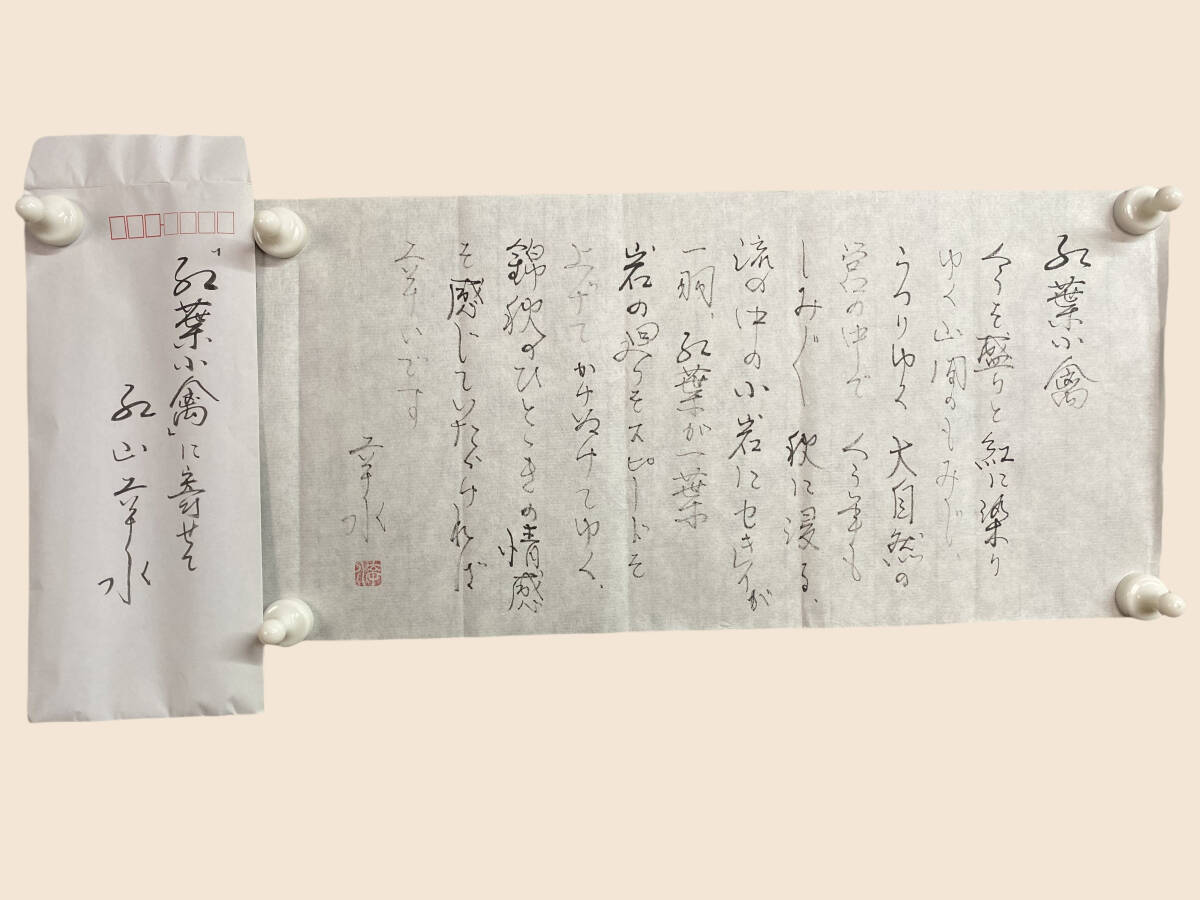 紅葉小禽
今を盛りと紅に染り
ゆく山間のもみじ、
うつりゆく 大自然の
営の中で 今年も
しみ〴〵 秋に浸る、
流の中の小岩にセキレイが
一羽、紅葉が一葉
岩の廻りをスピードを
上げて かけぬけてゆく、
錦秋のひとときの情感
を感じていただければ
幸いです
幸水
「紅葉小禽」に寄せて
紅山幸水